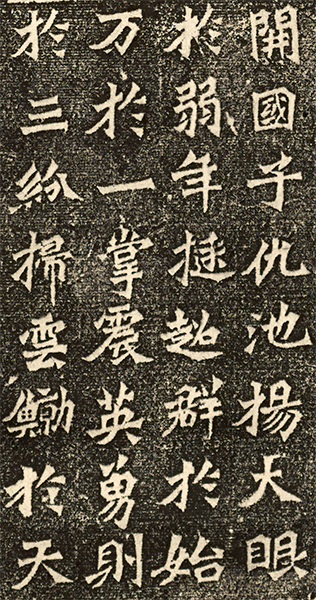 開國子仇池楊大眼
於弱年挺超群於始
万於一掌震英勇則
於三紛掃雲鯨於天